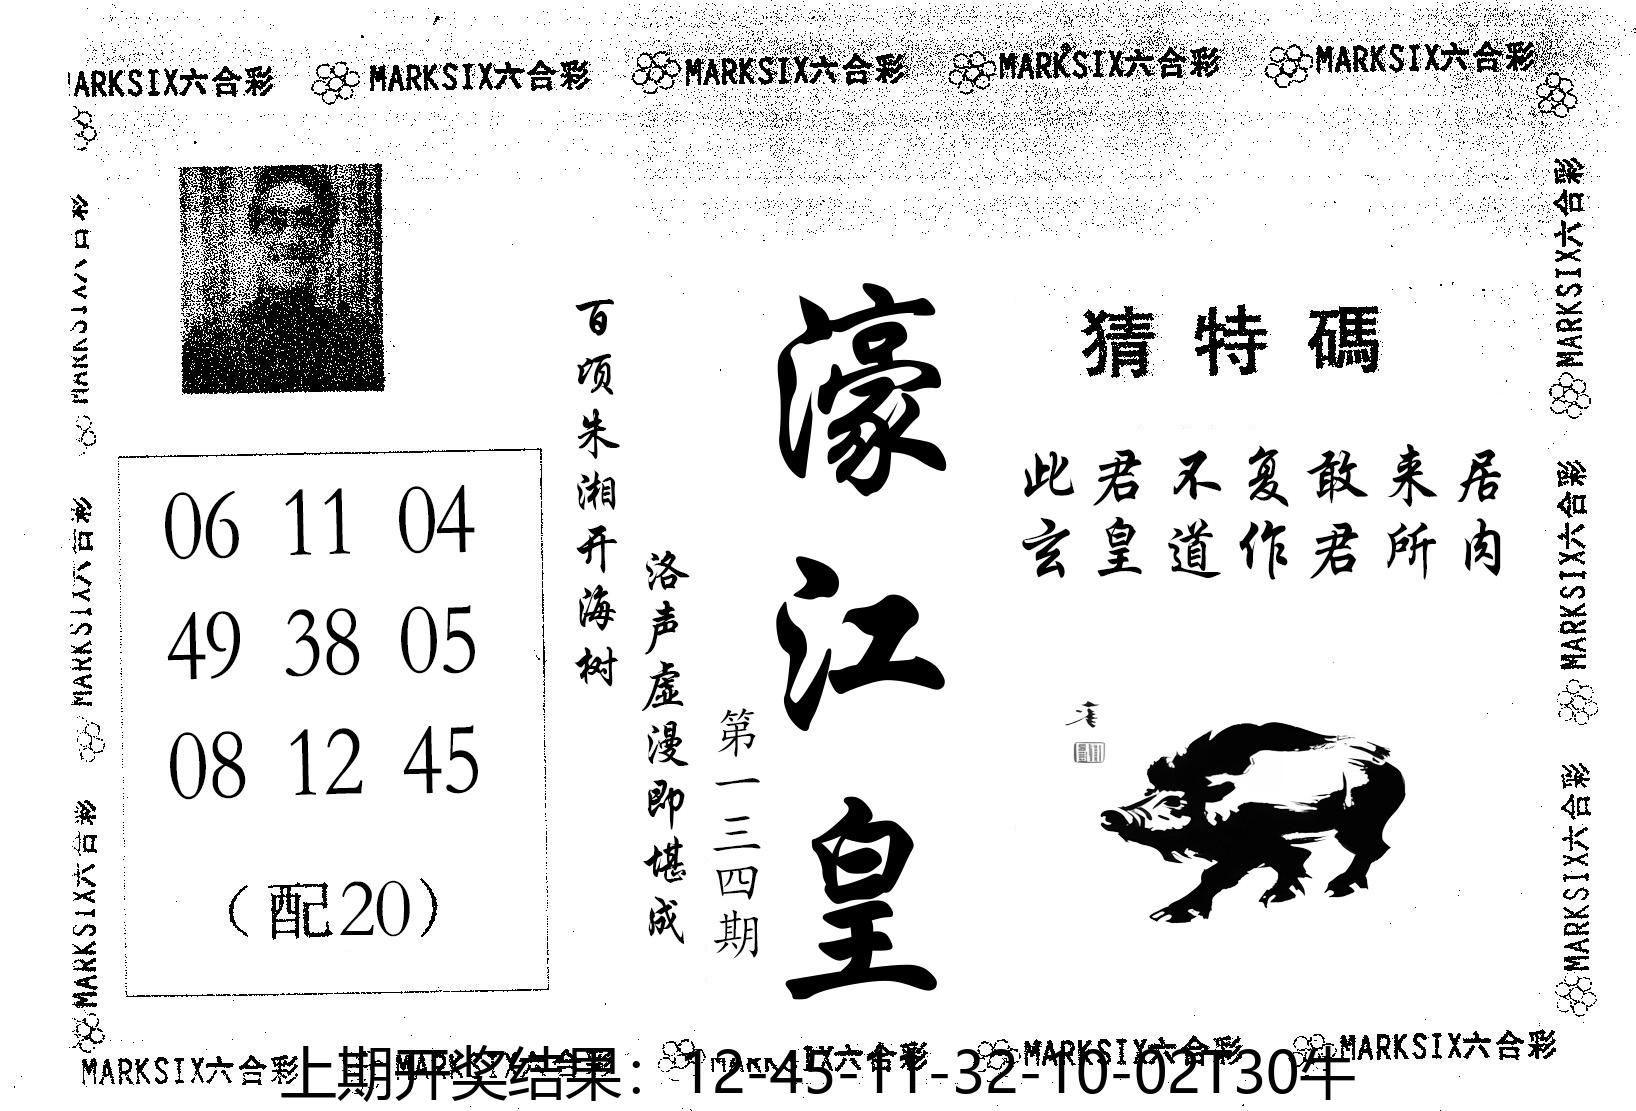 MARKSIX六合彩 MARKSIX六合彩 MARKSIX六合彩 MARKSIX六合彩 MARKSIX六合彩
MARKSIX六合彩
MARKSIX六合彩
MARKSIX六合彩
MARKSIX六合彩
MARKSIX六合彩
MARKSIX六合彩
06 11 04
49 38 05
08 12 45
（配20）
百顷朱湘开海树
洛声虚漫即堪成
第一三四期
濠江皇
猜特碼
此君不复敢来居
玄皇道作君所肉
MARKSIX六合彩 MARKSIX六合彩 MARKSIX六合彩 MARKSIX六合彩 MARKSIX六合彩
上期开奖结果：12-45-11-32-10-02T30牛